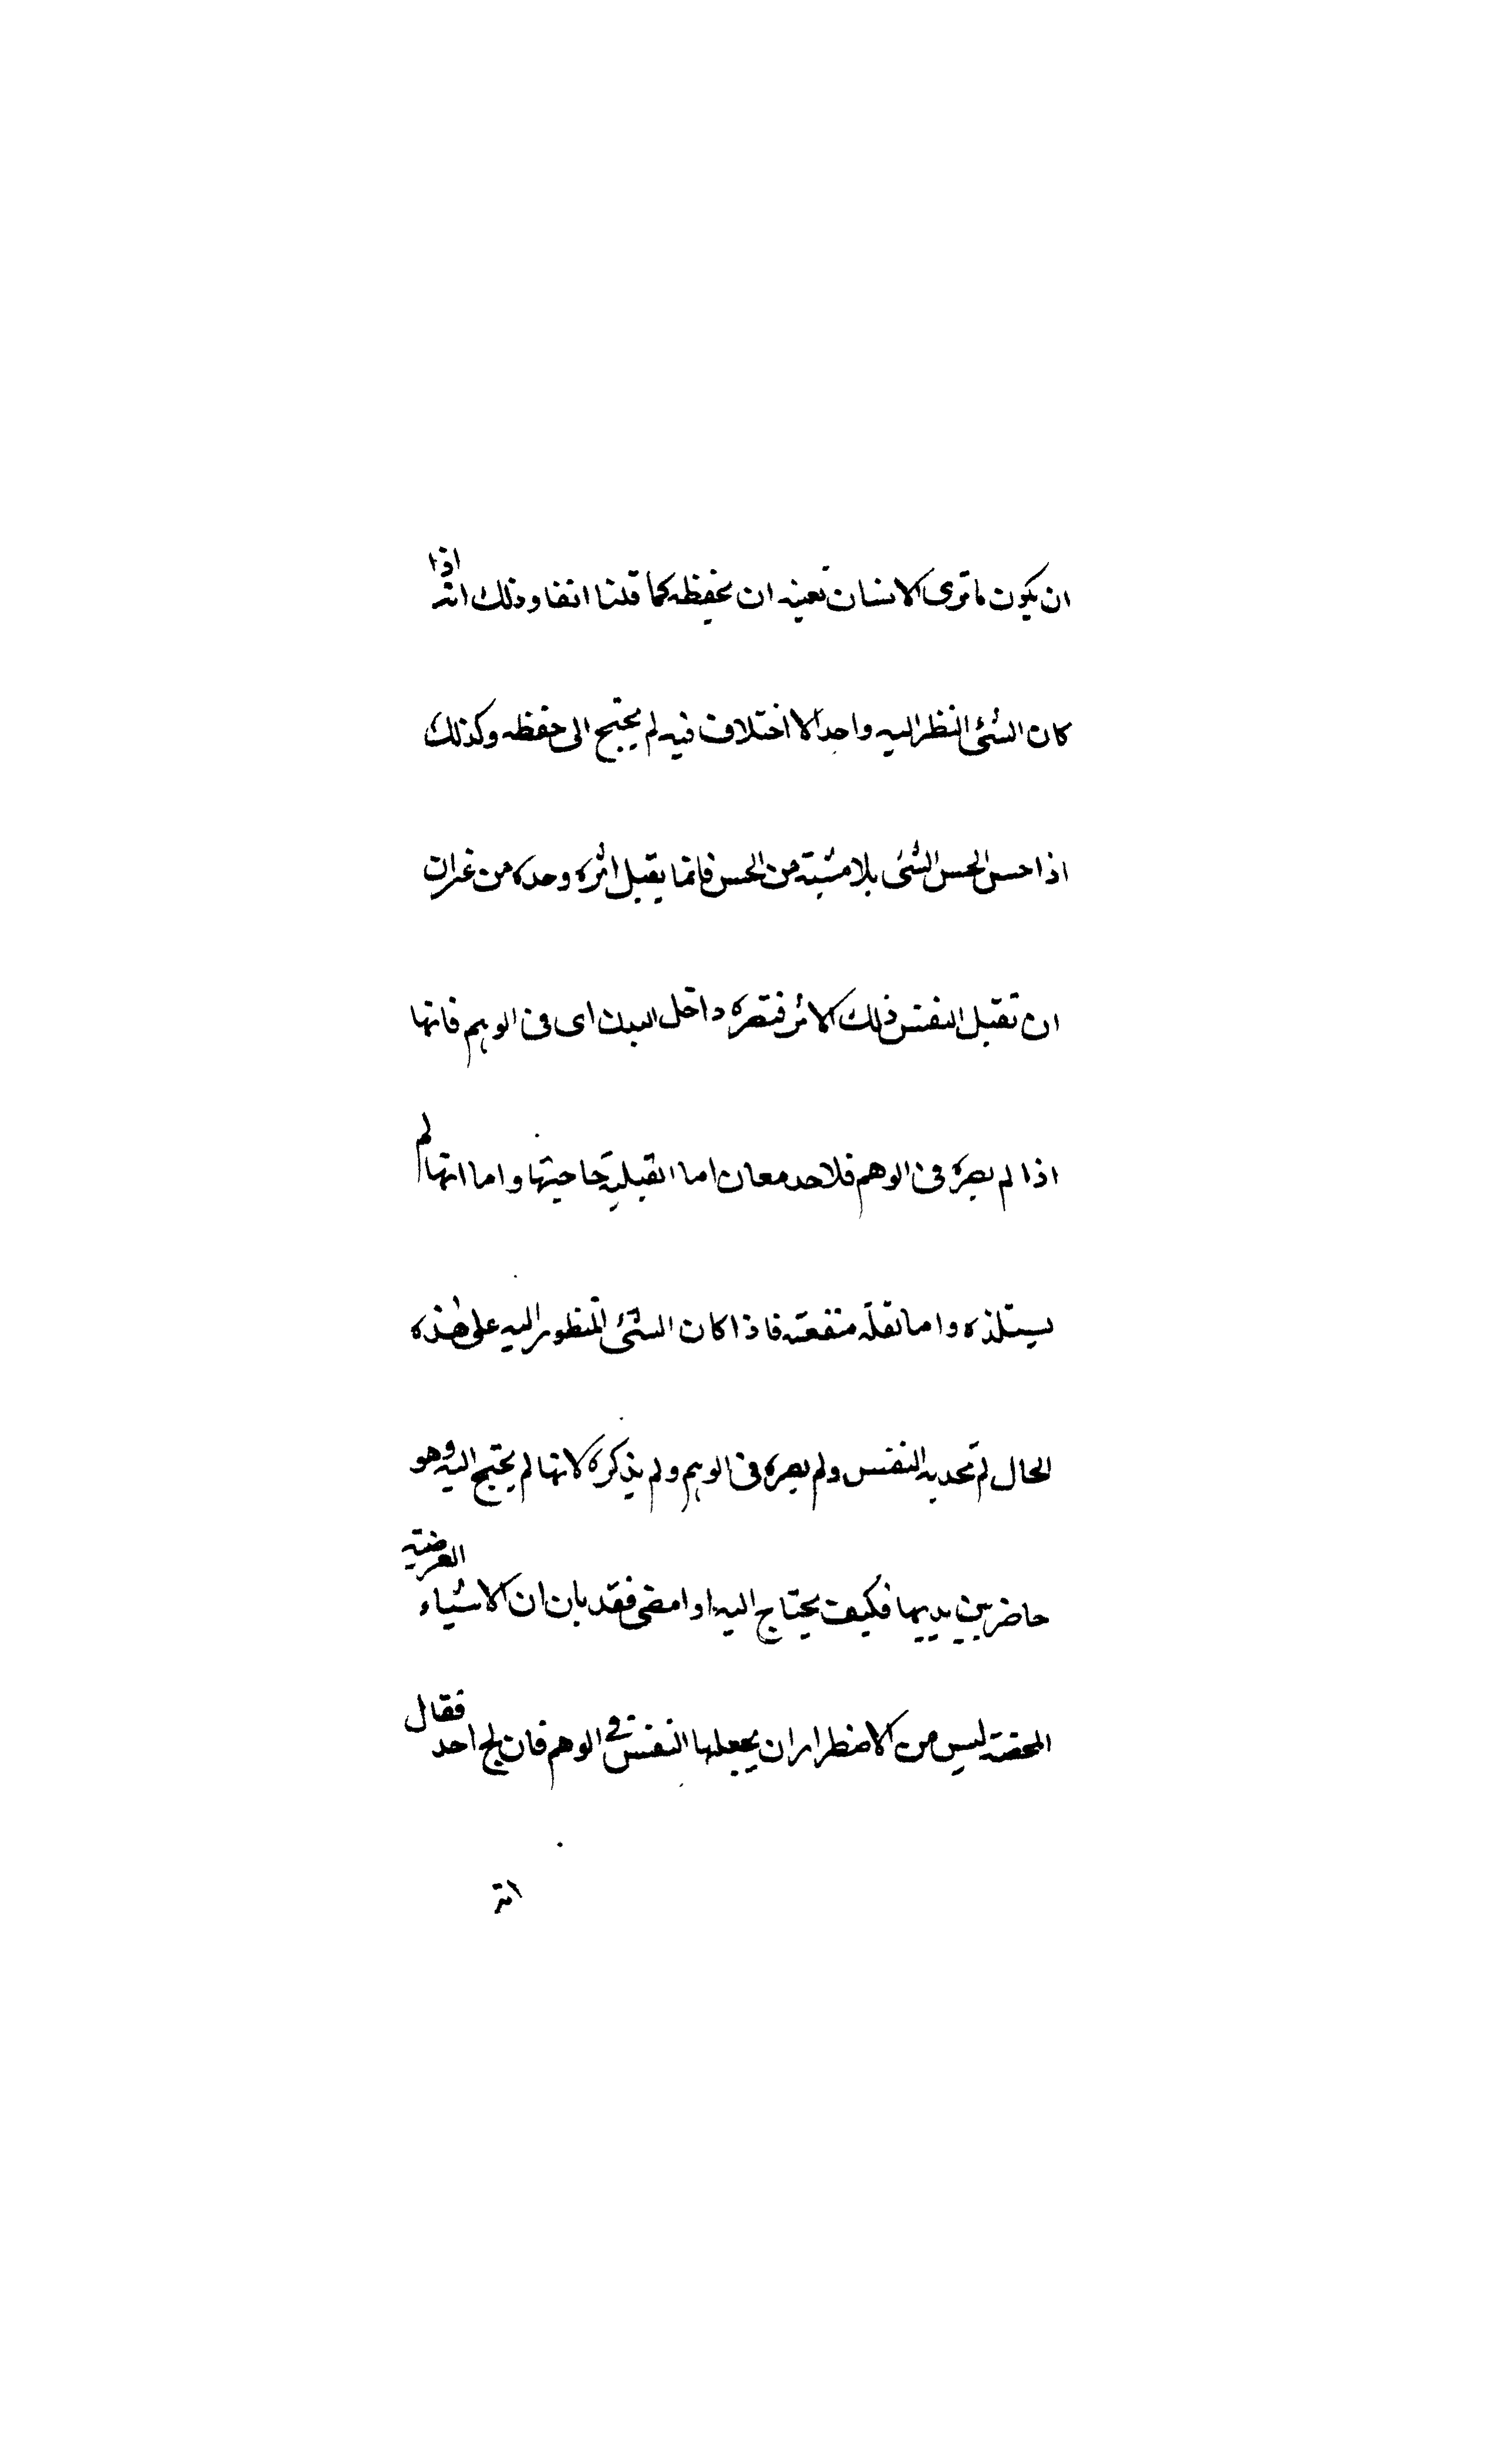 ان يكون ما ترى الانسان بعينه ان يحفظه كما قلنا انفا وذلك انه اذا
كان الشئ النظر اليه واحدا لا اختلاف فيه لم يحتج الى حفظه وكذلك
اذا حس الحس الشئ بلا مشية من الحس فانما يقبل اثره وحده من غير ان
ان تقبل النفس ذلك الاثر فتصره داخل البدن اى فى الوهم فانها
اذا لم يصره فى الوهم فلاحد معان اما لقبلية حاجتها واما انها لم
يستلذه واما نقلة منفعته فاذا كان الشئ المنظور اليه على هذه
الحال لم تحد به النفس ولم يصره فى الوهم ولم يذكره لانها لم يحتج اليه وهو
حاضر بين يديها فكيف يحتاج اليه اذا مضى فقد بان ان الاشياء العرضية
المحضة ليس من الاضطرار ان يجعلها النفس فى الوهم فان لج احد فقال
انه